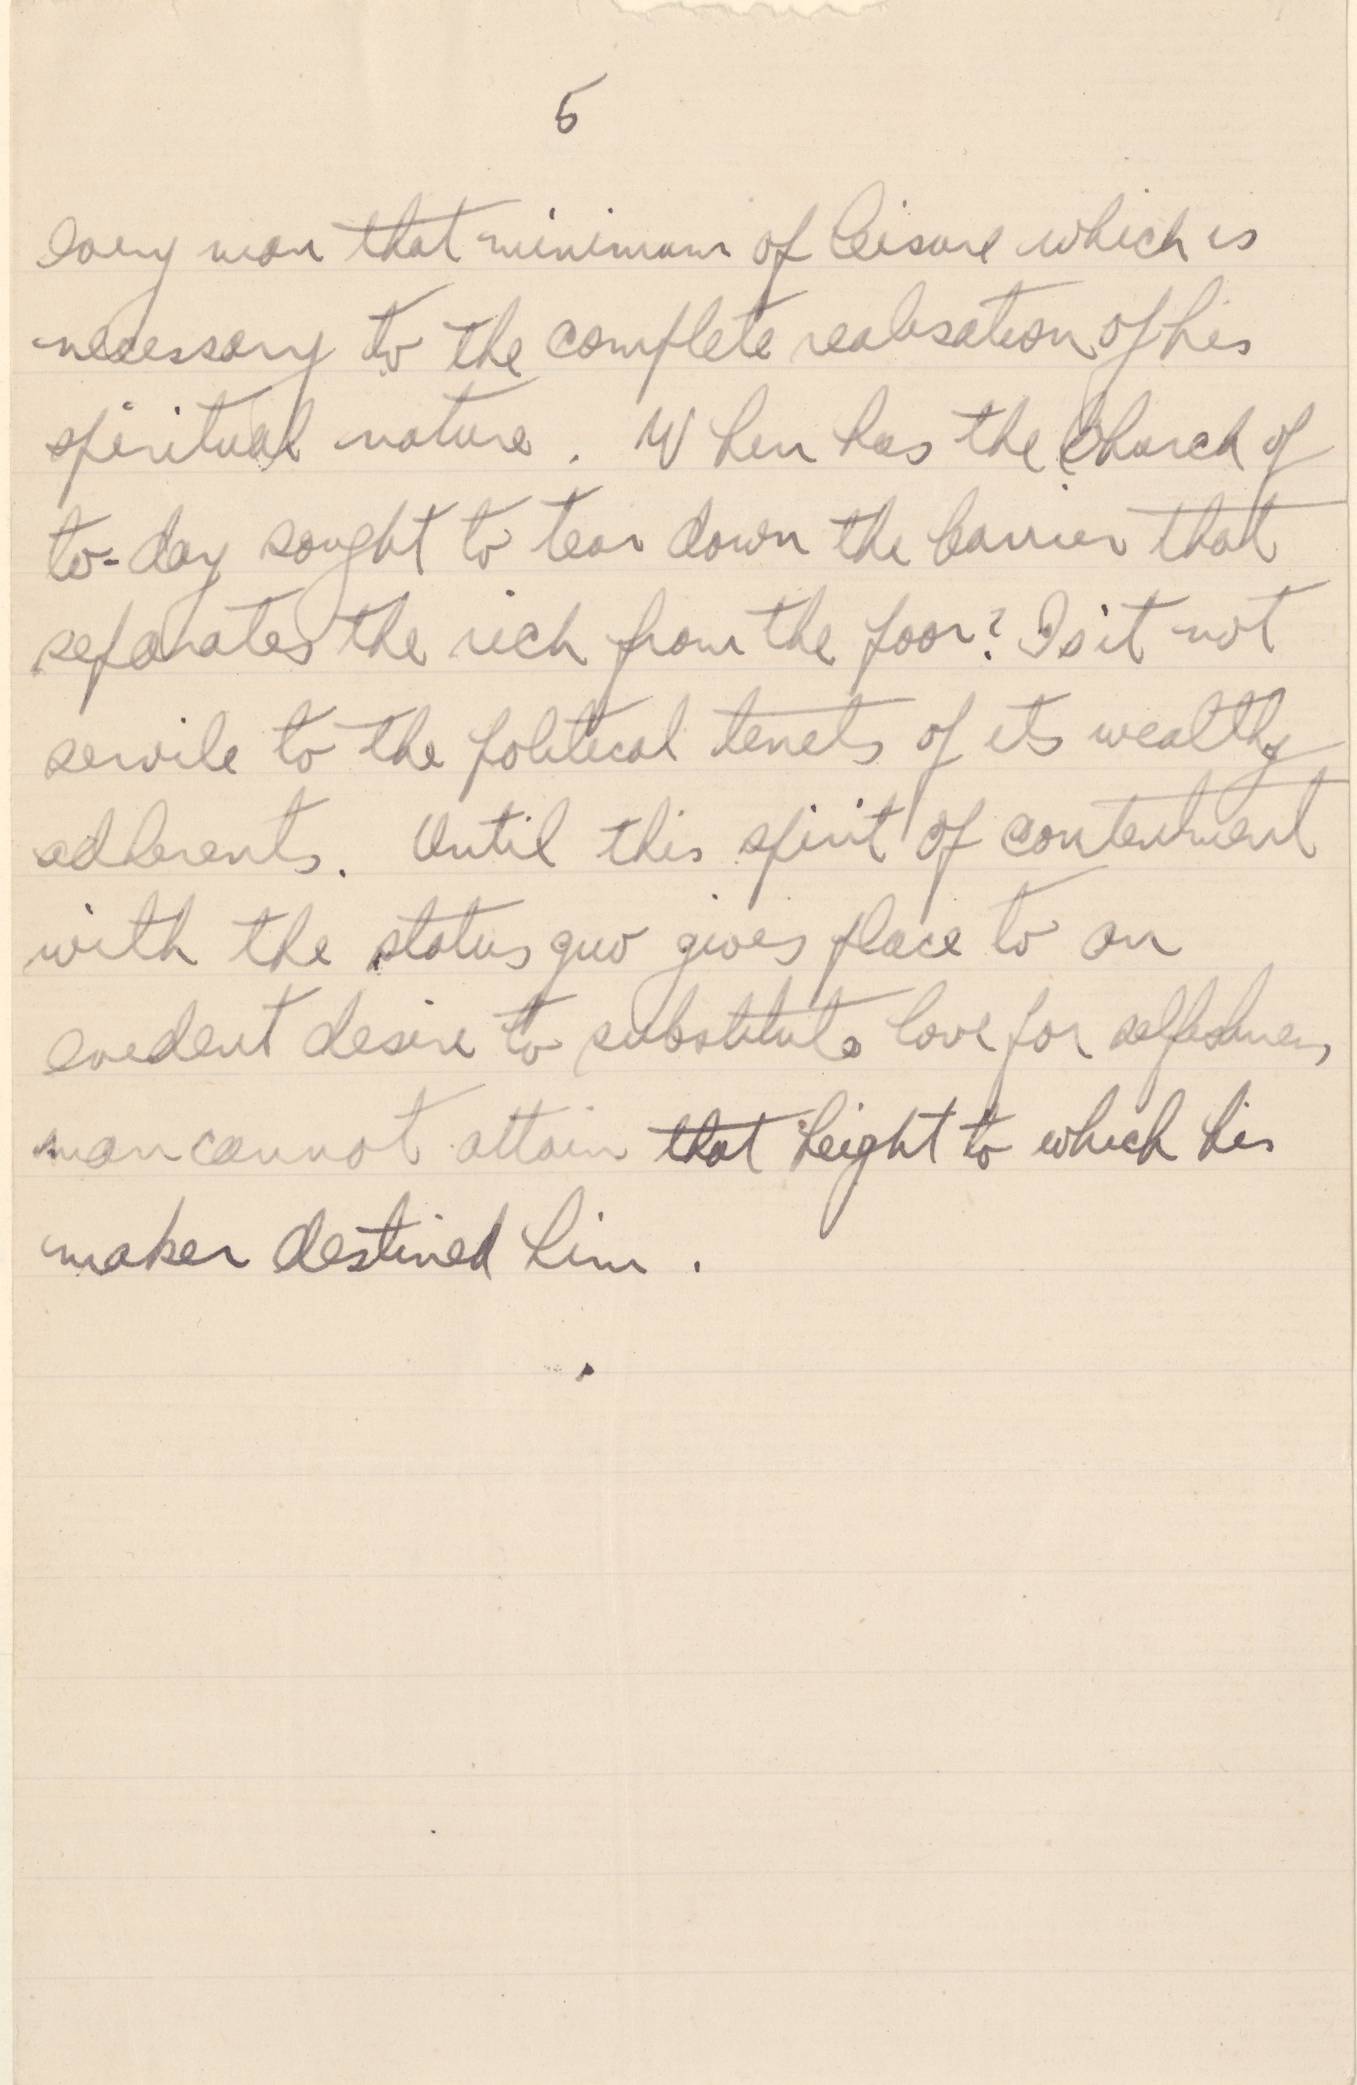 5
every man that minimum of leisure which is
necessary to the complete realisation of his
spiritual nature. When has the church of
to-day sought to tear down the barrier that
separates the rich from the poor? Is it not
servile to the political tenets of its wealthy
adherents. Until this spirit of contentment
with the status quo gives place to an
evident desire to substitute love for selfishness,
man cannot attain that height to which his
maker destined him.